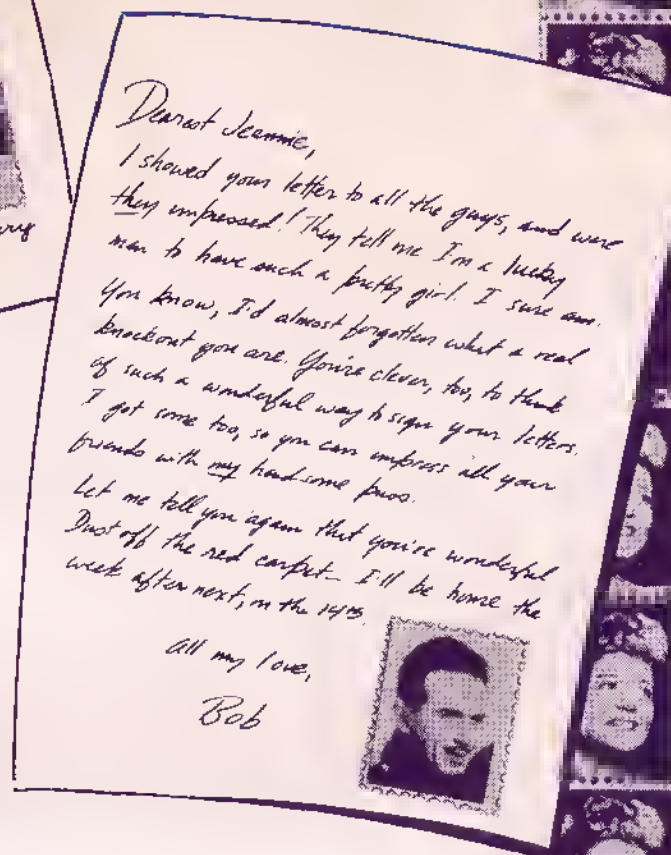 Dearest Jeannie,
I showed your letter to all the guys, and were
they impressed! They tell me I'm a lucky
man to have such a pretty girl. I sure am.
You know, I'd almost forgotten what a real
knockout you are. You're clever, too, to think
of such a wonderful way to sign your letters.
I got some too, so you can impress all your
friends with my handsome puss.
Let me tell you again that you're wonderful
Dust off the red carpet— I'll be home the
week after next, on the 14th.
All my love,
Bob